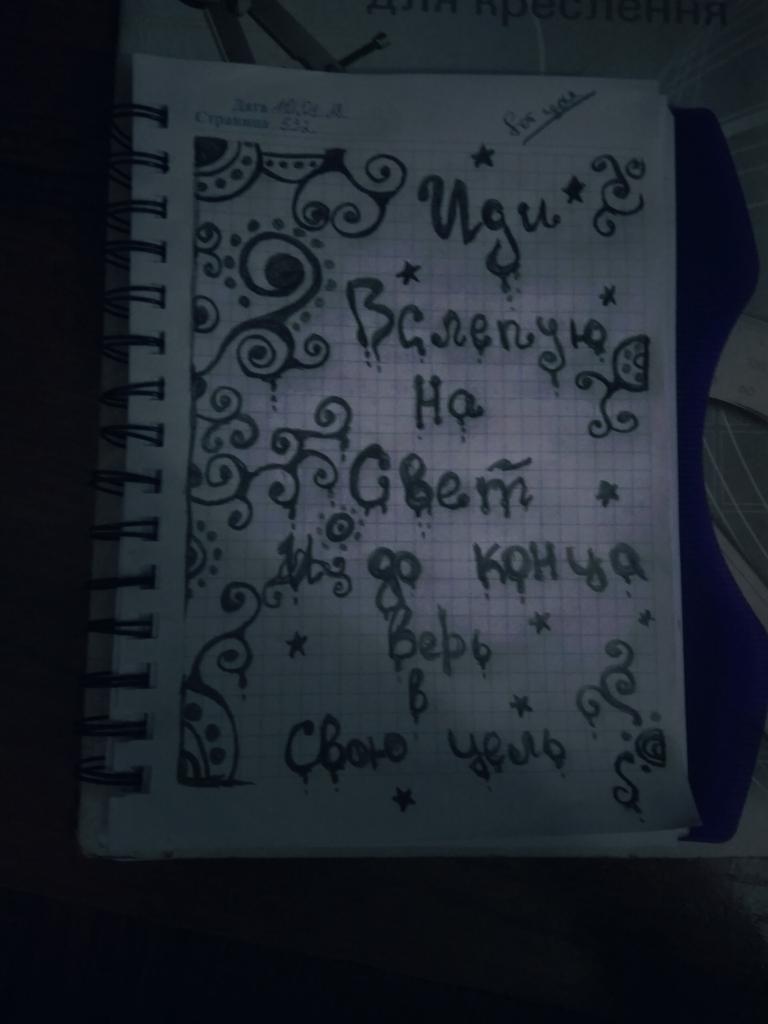 для креслення
Дата
Страница 532
For you
Иди
Вслепую
на
Свет
до конца
Верь
в
Свою цель